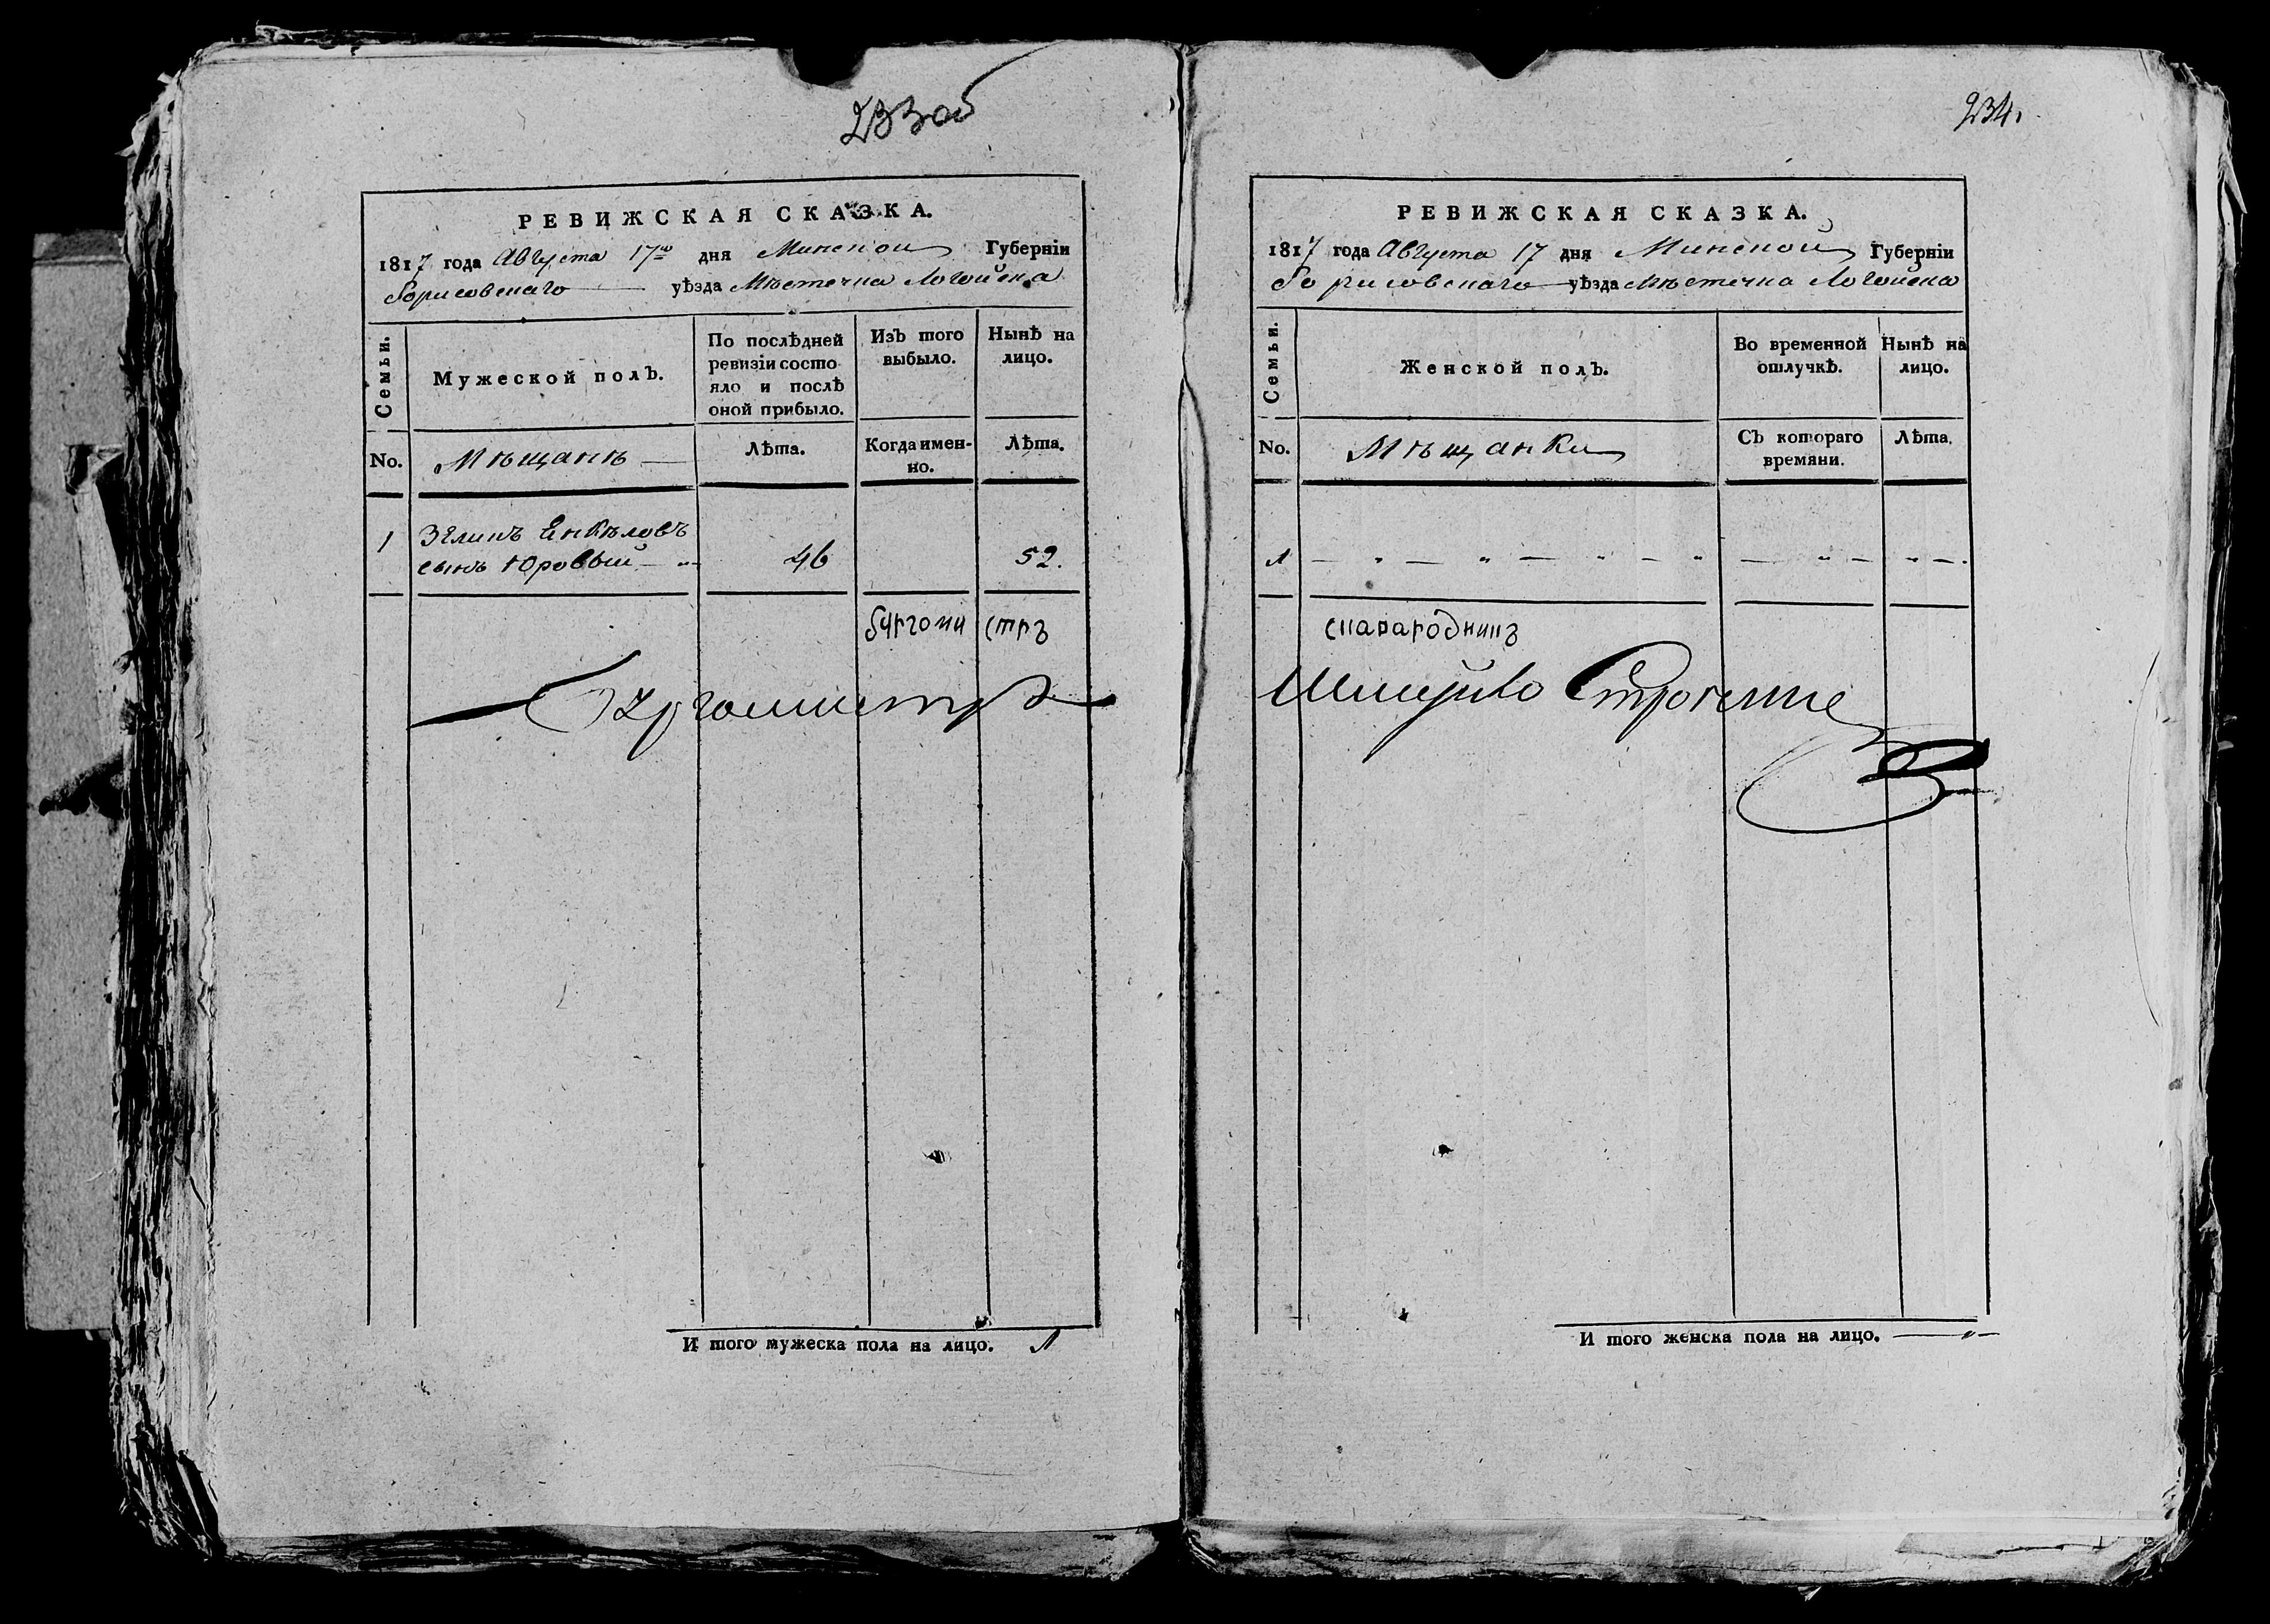 233об
РЕВИЖСКАЯ СКАЗКА.
1817 года Августа 17го дня Минской Губерніи
Борисовскаго уѣзда Мѣстечка Логойска
Семьи.
Мужеской полъ.
По послѣдней ревизіи состояло и послѣ оной прибыло.
Изъ того выбыло.
Нынѣ на лицо.
No.
Мѣщанѣ
Лѣта.
Когда имен-
но.
Лѣта.
1 Зѣлинъ Енкѣловъ
сынъ Юровый 46 52.
бургомистръ
Бургомистръ
И того мужеска пола на лицо. 1
234.
РЕВИЖСКАЯ СКАЗКА.
1817 года Августа 17 дня Минской Губерніи
Борисовскаго уѣзда Мѣстечка Логойска
Семьи.
Женской полъ.
Во временной
отлучкѣ.
Нынѣ на
лицо.
No.
Мѣщанки
Съ котораго
времяни.
Лѣта.
1 — " — " — " — " — " — " —.
И того женска пола на лицо. — " —